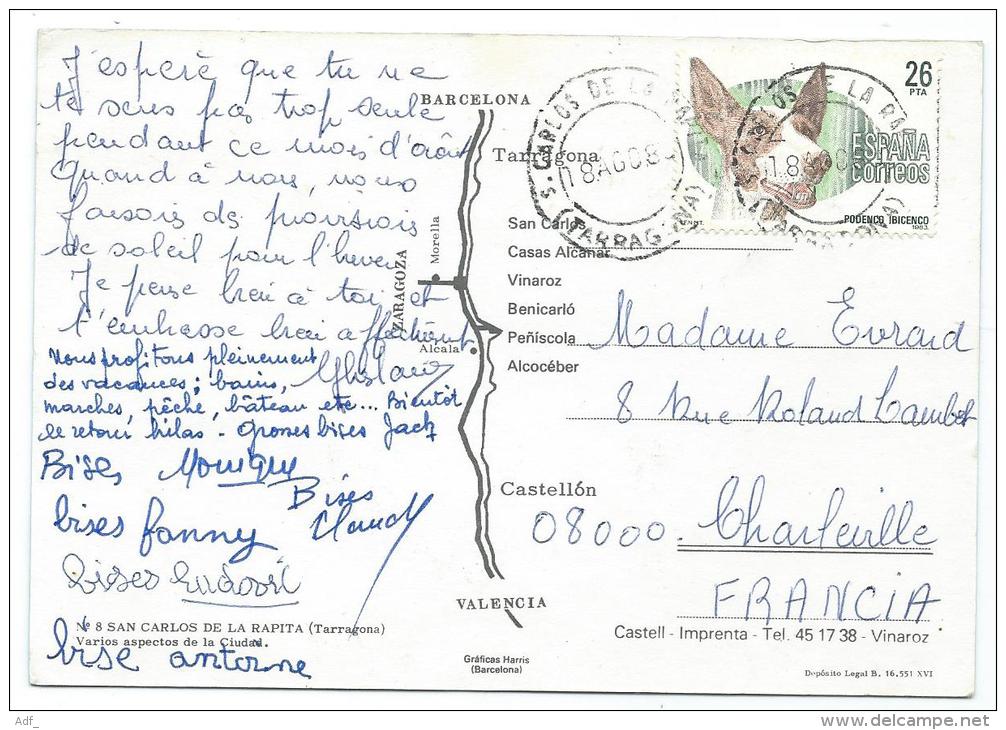 J'espère que tu ne
te sens pas trop seule
pendant ce mois d'août
Quand à nous, nous
faisons des provisions
de soleil pour l'hiver
Je pense bien à toi et
t'embrasse bien affectueusement
Ghislaine
Nous profitons pleinement
des vacances; bains,
marches, pêche, bâteau etc... Bientôt
le retour hélas - Grosses bises Jack
Bises
Bises
bises fanny
Bises
bise antoine
Nº 8 SAN CARLOS DE LA RAPITA (Tarragona)
Varios aspectos de la Ciudad.
BARCELONA
Tarragona
San Carlos
Casas Alcanar
Vinaroz
Benicarló
Peñíscola
Alcocéber
ZARAGOZA
Morella
Alcala
Castellón
VALENCIA
Gráficas Harris
(Barcelona)
S. CARLOS DE LA RAPITA
18 AGO 8
(TARRAGONA)
26
PTA
ESPAÑA
correos
PODENCO IBICENCO
1983
S. CARLOS DE LA RAPITA
18 AGO
(TARRAGONA)
Madame Evrard
8 Rue Roland
08000 Charleville
FRANCIA
Castell - Imprenta - Tel. 45 17 38 - Vinaroz
Depósito Legal B. 16.551 XVI
Adf_
www.delcampe.net